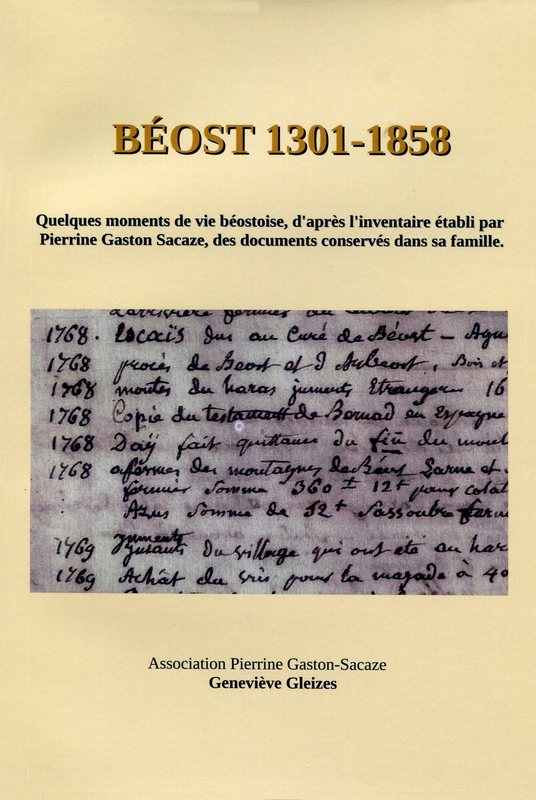 BÉOST 1301-1858
Quelques moments de vie béostoise, d'après l'inventaire établi par
Pierrine Gaston Sacaze, des documents conservés dans sa famille.
1768. dus au Curé de Béost -
1768 procés de Beost et d' Bois et
1768 montes du haras juments Etrangeres 16
1768 Copie du testament de Bernad en Espagne
1768 fait quittance du du
1768 afermes des montagnes de et
fermier Somme 360 12
Somme de 52
juments
1769 du village qui ont eté au har
1769 Achât du pour la à 40
Association Pierrine Gaston-Sacaze
Geneviève Gleizes